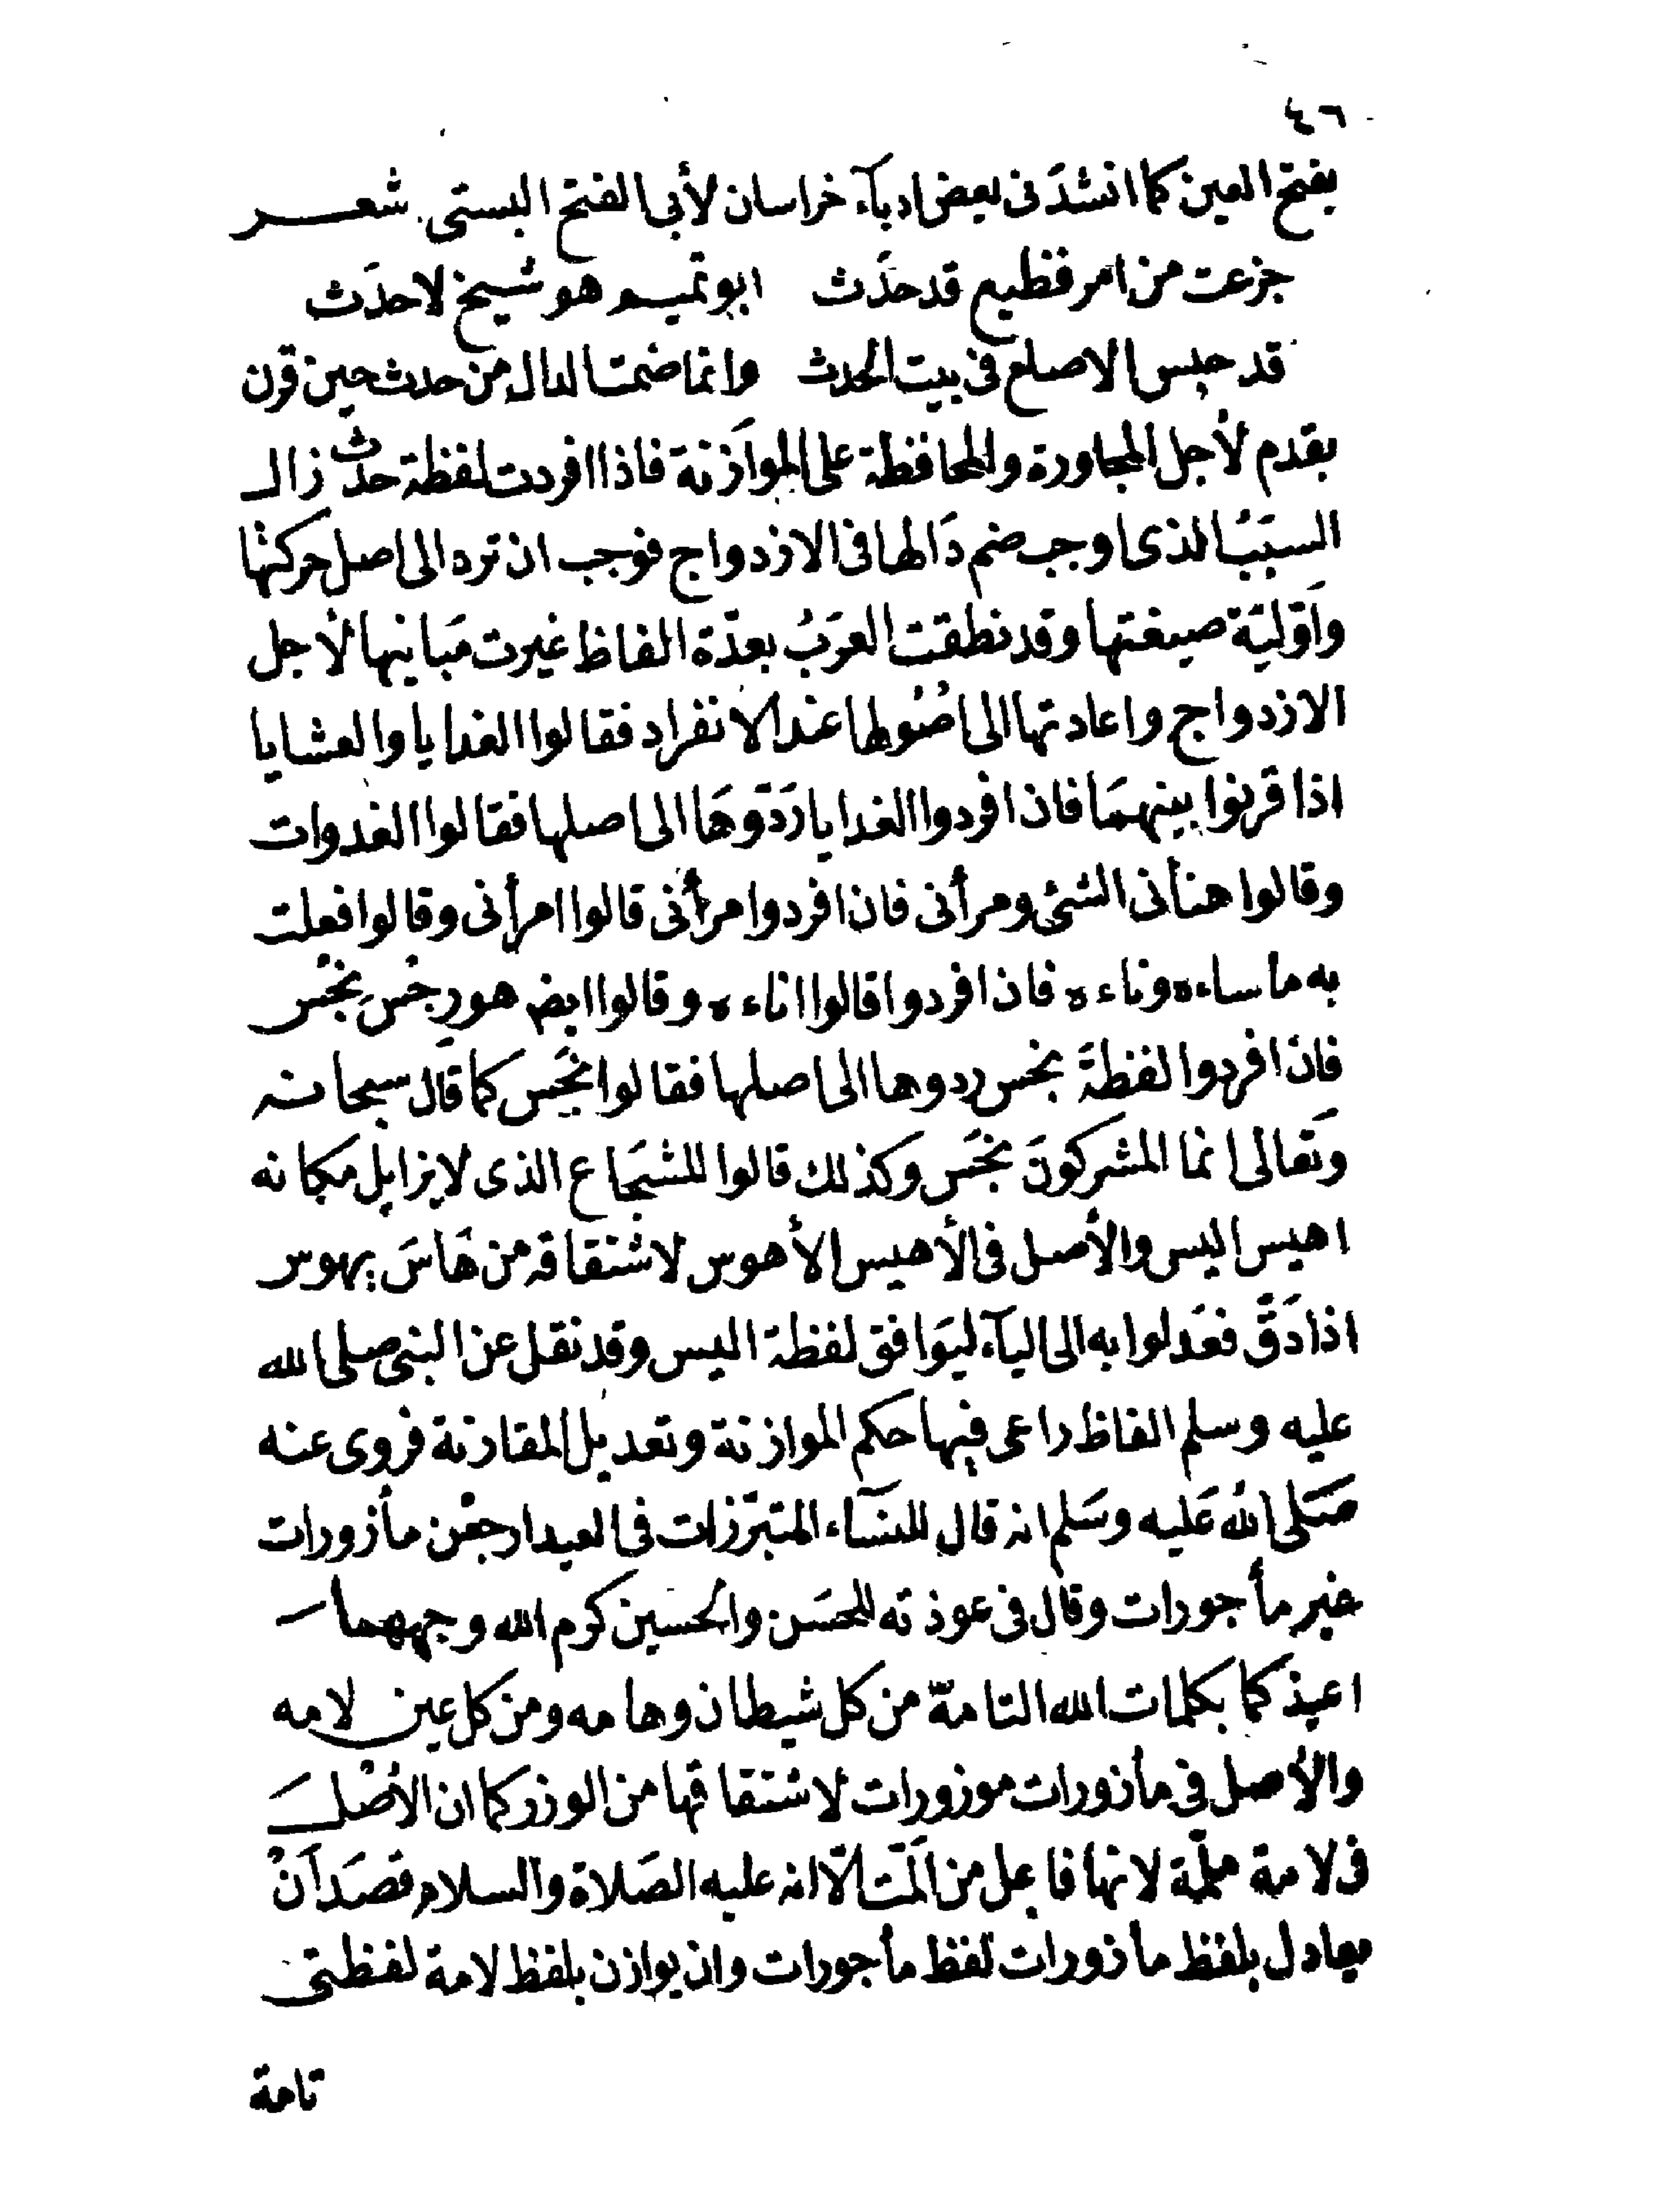 ٤٦
بفتح العين كما انشدَنى بعض ادبآء خراسان لأبى الفتح البستى شعر
جزعت من امر فظيع قد حدَث ابو تميم هو شيخ لا حدَث
قد حبس الاصلع فى بيت الحدث وانما ضمت الدال من حدث حين قرن
بقدم لأجل المجاورة والمحافظة على الموازنة فاذا افردت لفظة حدث زال
السبَبُ الذى اوجب ضم دَالها فى الازدواج فوجب ان ترد الى اصل حركتها
وَاوّليّة صيغتها وقد نطقت العرَبُ بعدّة الفاظ غيرت مَبانيها لأجل
الازدواج واعادتها الى اصُولها عند الانفراد فقالوا الغدايا والعشايا
اذا قرنوا بينهمَا فان افردوا الغدايا ردّوهَا الى اصلها فقالوا الغدوات
وقالوا هنأنى الشئ ومرأنى فان افردوا مرأنى قالوا امرأنى وقالوا فعلت
به ما ساءه وناءه فان افردوا قالوا اناءه وقالوا ايض هو رجْس نجْس
فان افردوا لفظةَ نجس ردوها الى اصلها فقالوا نَجَس كما قال سبحانه
وَتعالى انما المشركونَ نجَس وكذلك قالوا للشجَاع الذى لا يزايل مكانه
اهيس اليس والأصل فى الأهيس الأهوس لاشتقاقه من هَاسَ يهوس
اذا دَقّ فعَدلوا به الى اليآء ليوَافق لفظة اليس وقد نقل عن النبى صلى الله
عليه وسلم الفاظ راعى فيها حكم الموازنة وتعديل المقارنة فروى عنه
صَلى اللهُ عَليه وسَلم انه قال للنسَآء المتبرّزات فى العيد ارجعْن مأزورات
غير مأجورات وقال فى عوذته للحسَن والحسين كرم الله وجههما
اعيذكما بكلمات الله التامّة من كل شيطان وهامه ومن كل عين لامه
والأصل فى مأزورات موزورات لاشتقاقها من الوزر كما ان الأصْلَ
فى لامة ملمّة لانها فاعل من المّت الّا انه عليه الصَلاة والسلام قصَد اَنْ
يعادل بلفظ مأزورات لفظ مأجورات وان يوازن بلفظ لامة لفظتى
تامة